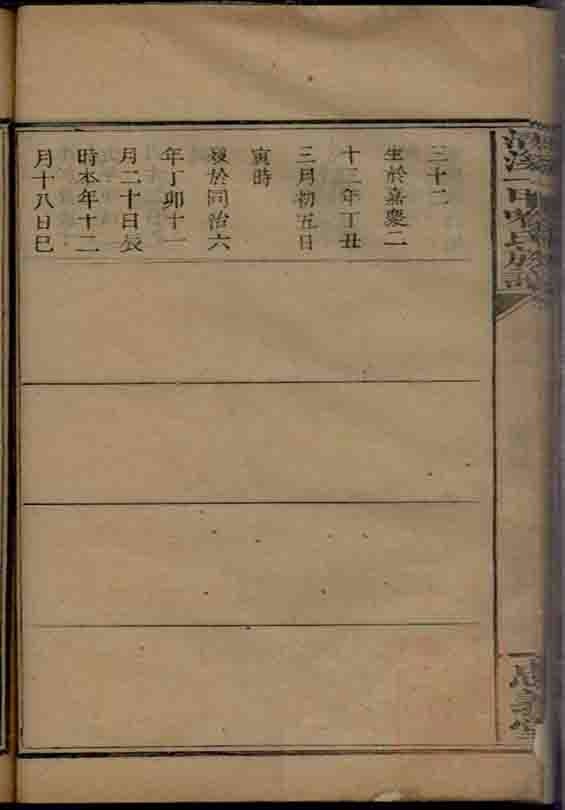 三十二
生於嘉慶二
十二年丁丑
三月初五日
寅時
歿於同治六
年丁卯十一
月二十日辰
時本年十二
月十八日巳